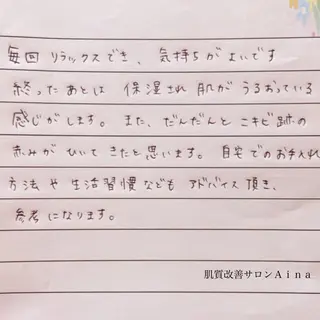 毎回 リラックスでき、気持ちがよいです
終ったあとは 保湿され 肌が うるおっている
感じがします。また、だんだんと ニキビ跡の
赤みが ひいて きたと思います。自宅でのお手入れ
方法や 生活習慣なども アドバイス頂き、
参考になります。
肌質改善サロンAina